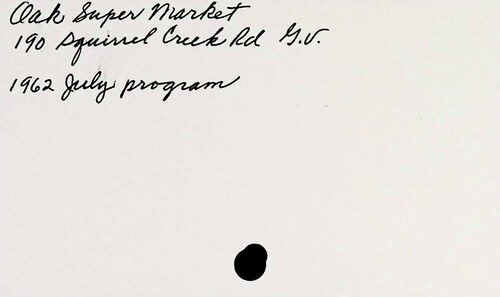 Oak Super Market
190 Squirrel Creek Rd G.V.
1962 July program